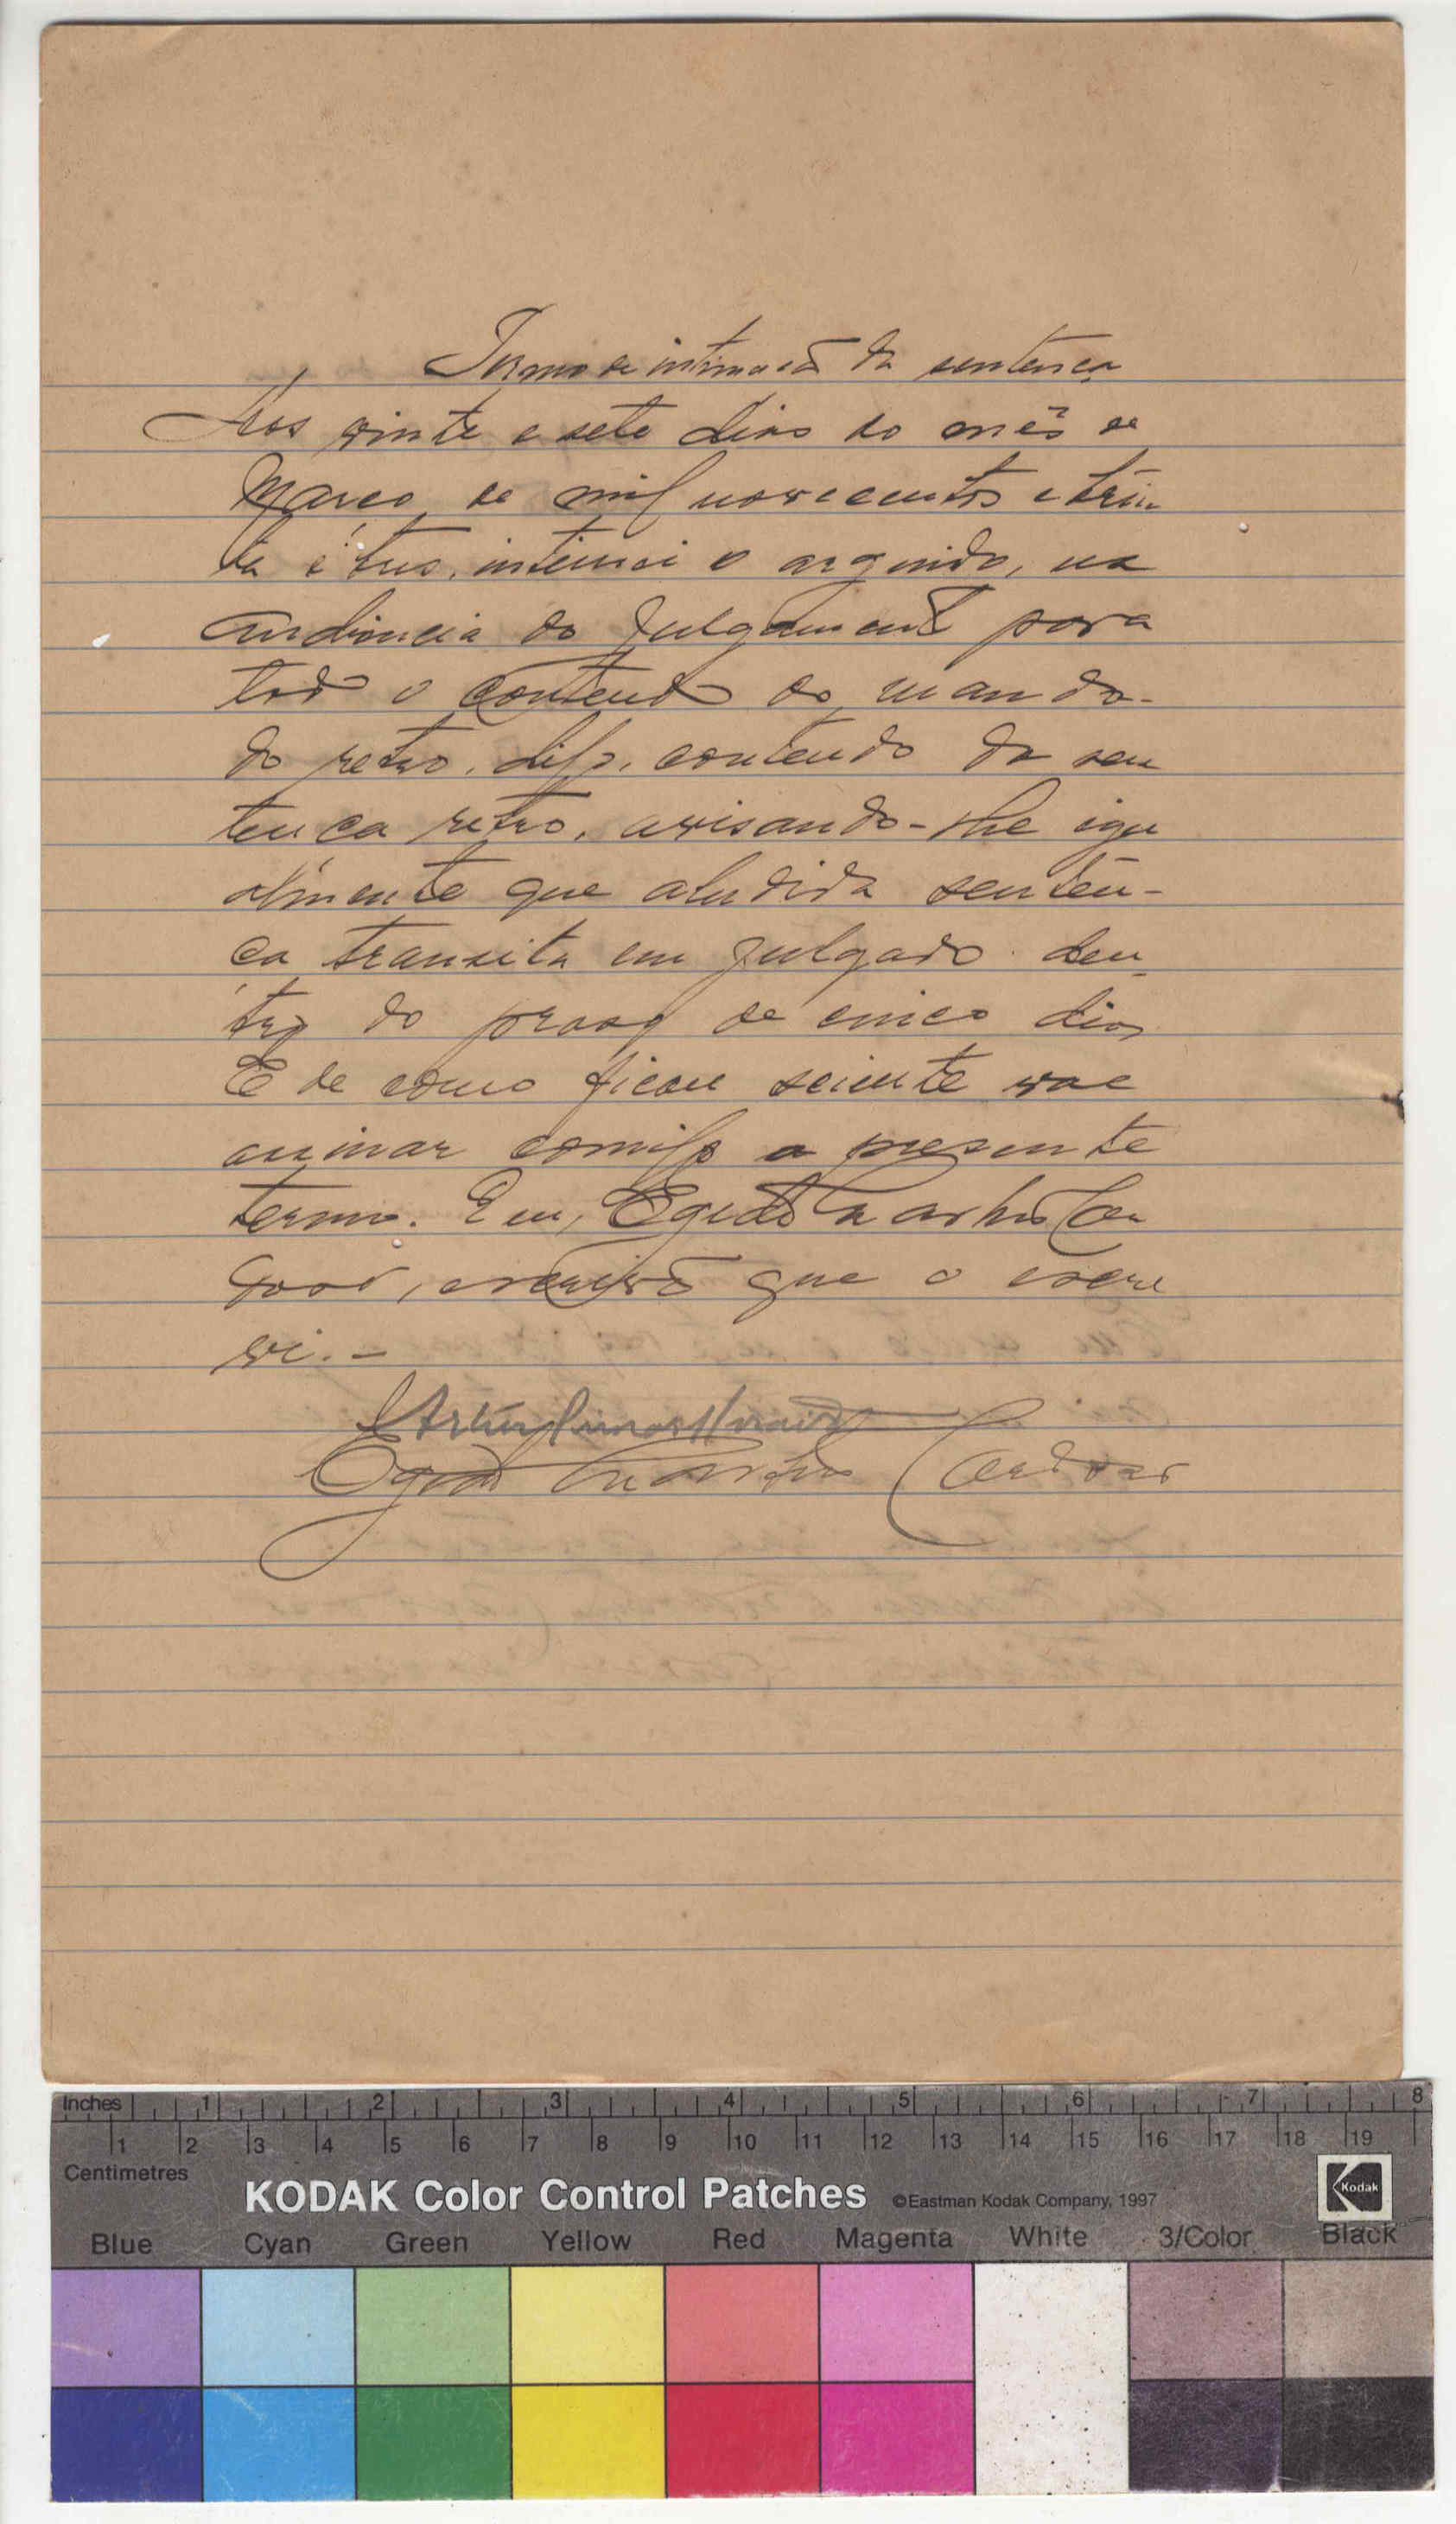 Termo de intimacã da sentença
Aos vinte e sete dias do mês de
Março de mil novecentos e trin
ta e tres, intimei o arguido, na
audiencia do julgamento para
todo o contendo do manda-
do retro, diso, contendo da sen
tença retro, avisando-lhe igu
almente que aludida senten-
ça transita em julgado den
tro do praso de cinco dias
E de como ficou sciente vae
assinar comigo o presente
termo. Eu, Egidio Car
doso, escrivã que o escre
vi. -
Artur
Egidio Cardoso
Inches 1 2 3 4 5 6 7 8
1 2 3 4 5 6 7 8 9 10 11 12 13 14 15 16 17 18 19
Centimetres
KODAK Color Control Patches ©Eastman Kodak Company, 1997 Kodak
Blue Cyan Green Yellow Red Magenta White 3/Color Black